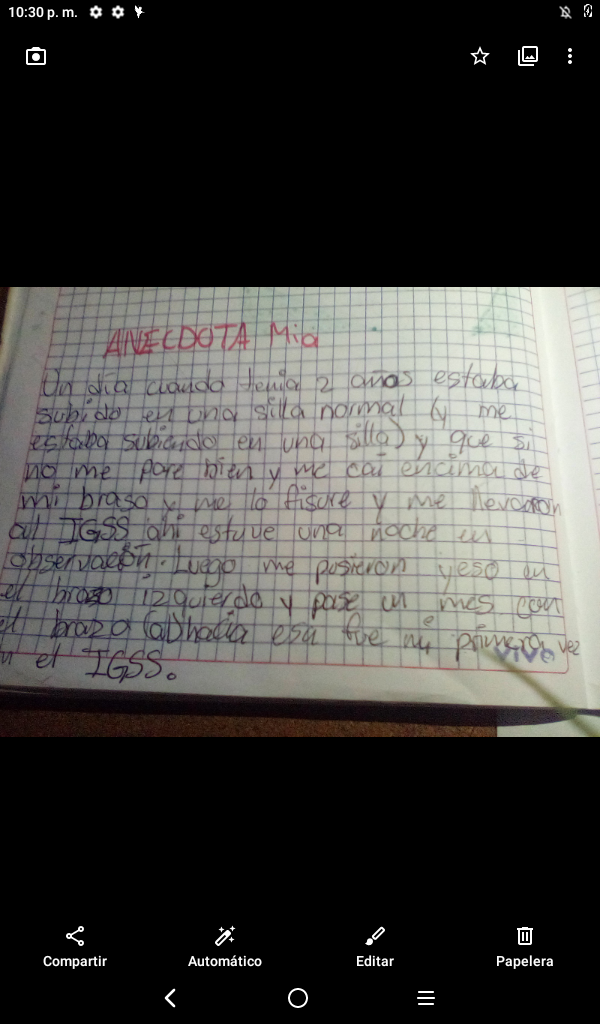 10:30 p. m.
ANECDOTA Mia
Un dia cuando tenia 2 años estaba
subido en una silla normal (y me
estaba subiendo en una silla) y que si
no me pare bien y me cai encima de
mi braso y me lo fisure y me llevaron
al IGSS ahi estuve una noche en
observación. Luego me pusieron yeso en
el brazo izquierdo y pase un mes con
el brazo (a) hacia esa fue mi primera vez
n el IGSS.
vivo
Compartir
Automático
Editar
Papelera